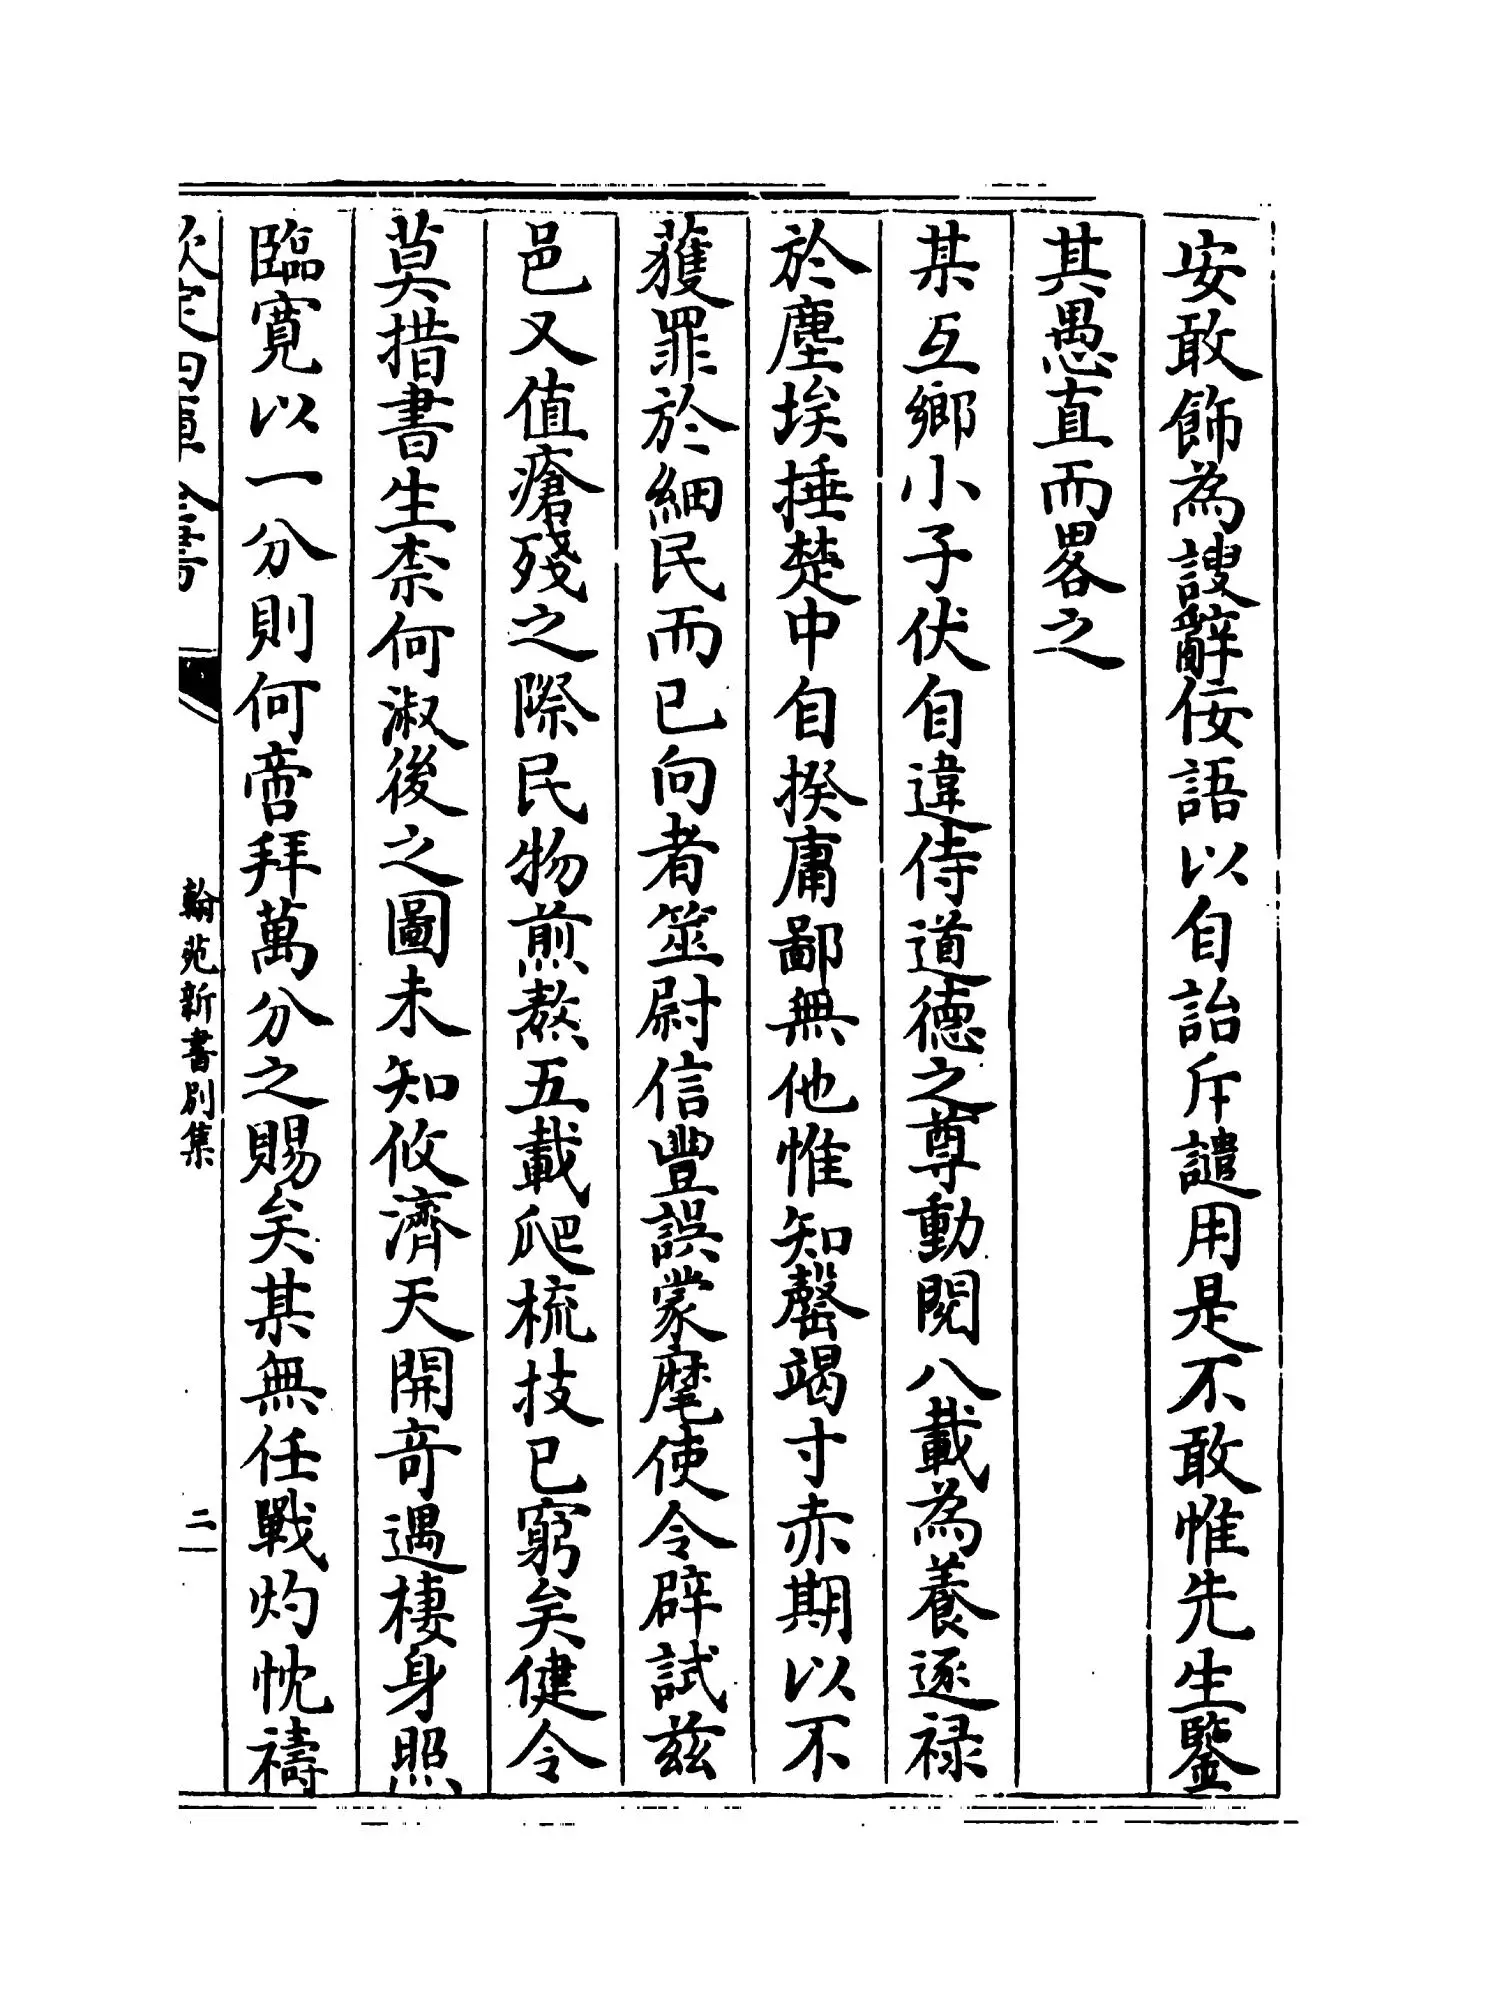 安敢飾為諛辭佞語以自詒斥譴用是不敢惟先生鑒
其愚直而畧之
某互鄉小子伏自違侍道德之尊動閱八載為養逐禄
於塵埃捶楚中自揆庸鄙無他惟知罄竭寸赤期以不
獲罪於細民而已向者筮尉信豐誤蒙麾使令辟試兹
邑又值瘡殘之際民物煎熬五載爬梳技已窮矣健令
莫措書生柰何淑後之圖未知攸濟天開奇遇棲身照
臨寛以一分則何啻拜萬分之賜矣某無任戰灼忱禱
欽定四庫全書
翰苑新書別集
二